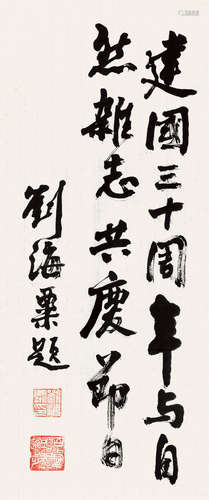 建國三十周年与自
然雜志共慶節日
劉海粟題